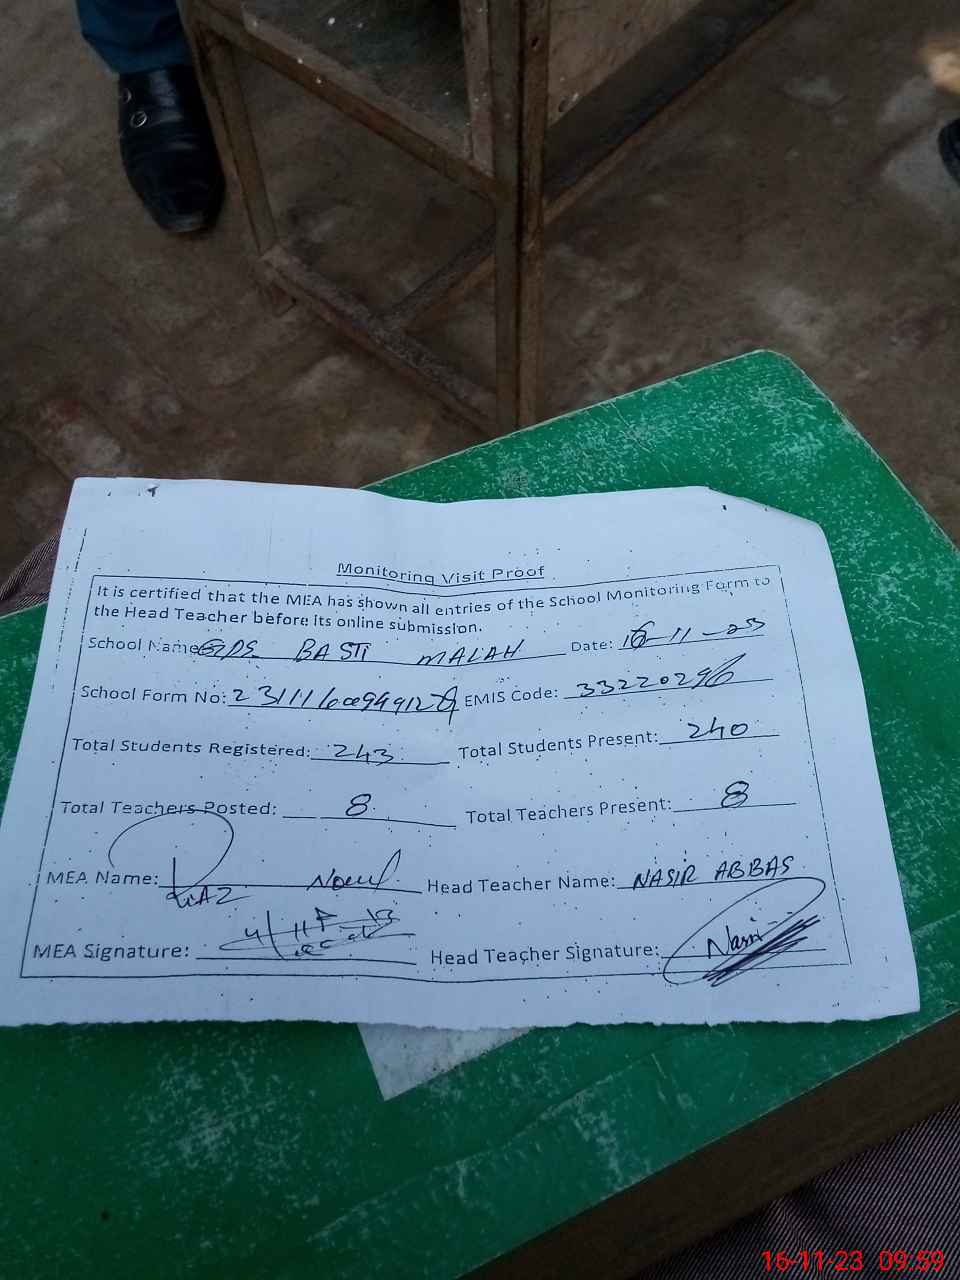 Monitoring Visit Proof
It is certified that the MEA has shown all entries of the School Monitoring Form to
the Head Teacher before its online submission.
School Name: GPS BASTI MALAH Date: 16-11-23
School Form No: EMIS Code: 33220296
Total Students Registered: 243 Total Students Present: 240
Total Teachers Posted: 8 Total Teachers Present: 8
MEA Name: Head Teacher Name: NASIR ABBAS
MEA Signature: Head Teacher Signature: Nasir
16-11-23 09:59